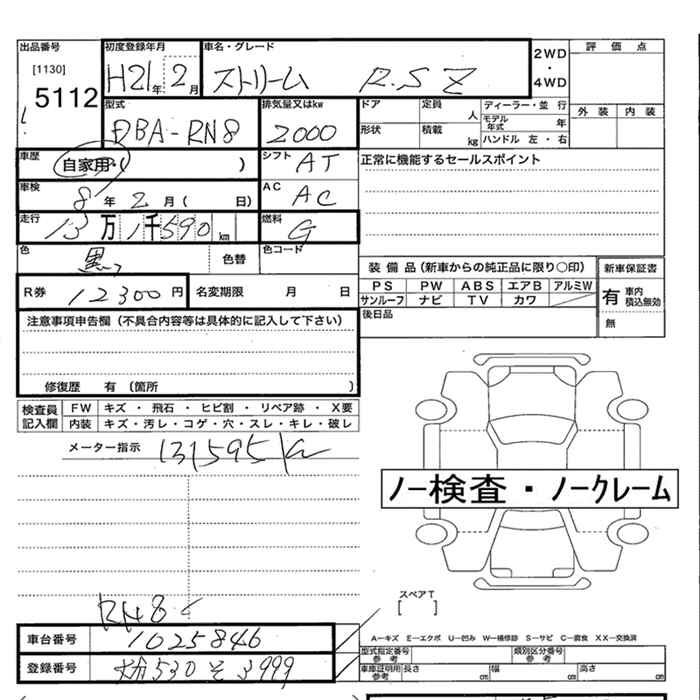 出品番号 初度登録年月 車名・グレード 2WD・4WD 評価点
[1130] 5112 H21年 2月 ストリーム RSZ
外装 内装
型式 排気量又はkw ドア 定員 人 ディーラー・並行
DBA-RN8 2000 形状 積載 kg モデル年式 年
ハンドル 左・右
車歴 自家用・( ) シフト AT 正常に機能するセールスポイント
車検 8年 2月( 日) AC AC
走行 13万1千590km 燃料 G
色 黒 色替 色コード
装備品(新車からの純正品に限り〇印) 新車保証書
R券 12300円 名変期限 月 日
PS PW ABS エアB アルミW 有 車内積込無効
サンルーフ ナビ TV カワ
後日品 無
注意事項申告欄(不具合内容等は具体的に記入して下さい)
修復歴 有(箇所 )
検査員記入欄 FW キズ・飛石・ヒビ割・リペア跡・X要
内装 キズ・汚レ・コゲ・穴・スレ・キレ・破レ
メーター指示 131595
ノー検査・ノークレーム
スペアT
[ ]
RN8
車台番号 1025846
A−キズ E−エクボ U−凹み W−補修跡 S−サビ C−腐食 XX−交換済
型式指定番号 参考 類別区分番号 参考
登録番号 530 そ 3999
車庫証明用参考 長さ cm 幅 cm 高さ cm